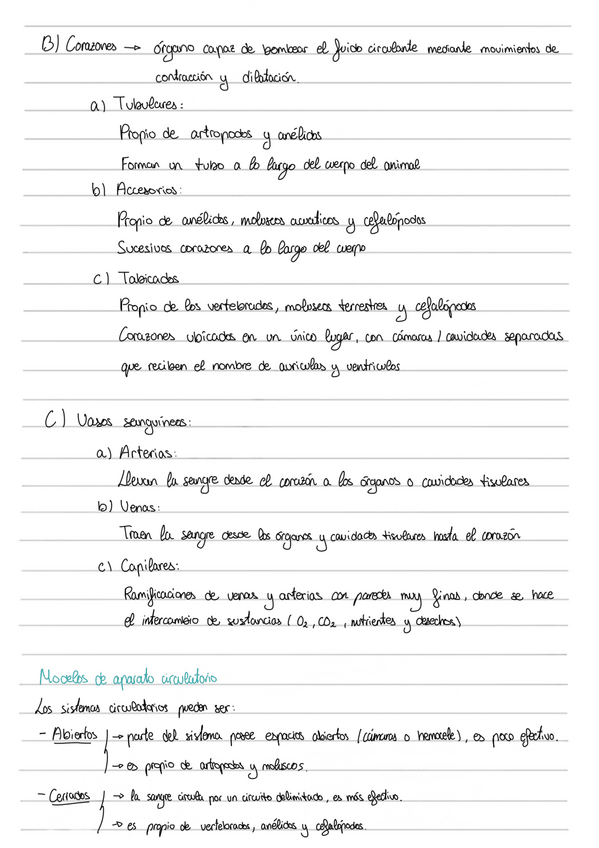 B) Corazones → órgano capaz de bombear el fluido circulante mediante movimientos de
contracción y dilatación.
a) Tubulares:
Propio de artropodos y anélidos
Forman un tubo a lo largo del cuerpo del animal
b) Accesorios:
Propio de anélidos, moluscos acuaticos y cefalópodos
Sucesivos corazones a lo largo del cuerpo
c) Tabicados
Propio de los vertebrados, moluscos terrestres y cefalópodos
Corazones ubicados en un único lugar, con cámaras / cavidades separadas
que reciben el nombre de auriculas y ventriculos
C) Vasos sanguíneos:
a) Arterias:
Llevan la sangre desde el corazón a los órganos o cavidades tisulares
b) Venas:
Traen la sangre desde los órganos y cavidades tisulares hasta el corazón
c) Capilares:
Ramificaciones de venas y arterias con paredes muy finas, donde se hace
el intercambio de sustancias (O₂, CO₂, nutrientes y desechos)
Modelos de aparato circulatorio
Los sistemas circulatorios pueden ser:
- Abiertos → parte del sistema posee espacios abiertos (cámaras o hemocele), es poco efectivo.
→ es propio de artropodos y moluscos.
- Cerrados → la sangre circula por un circuito delimitado, es más efectivo.
→ es propio de vertebrados, anélidos y cefalópodos.